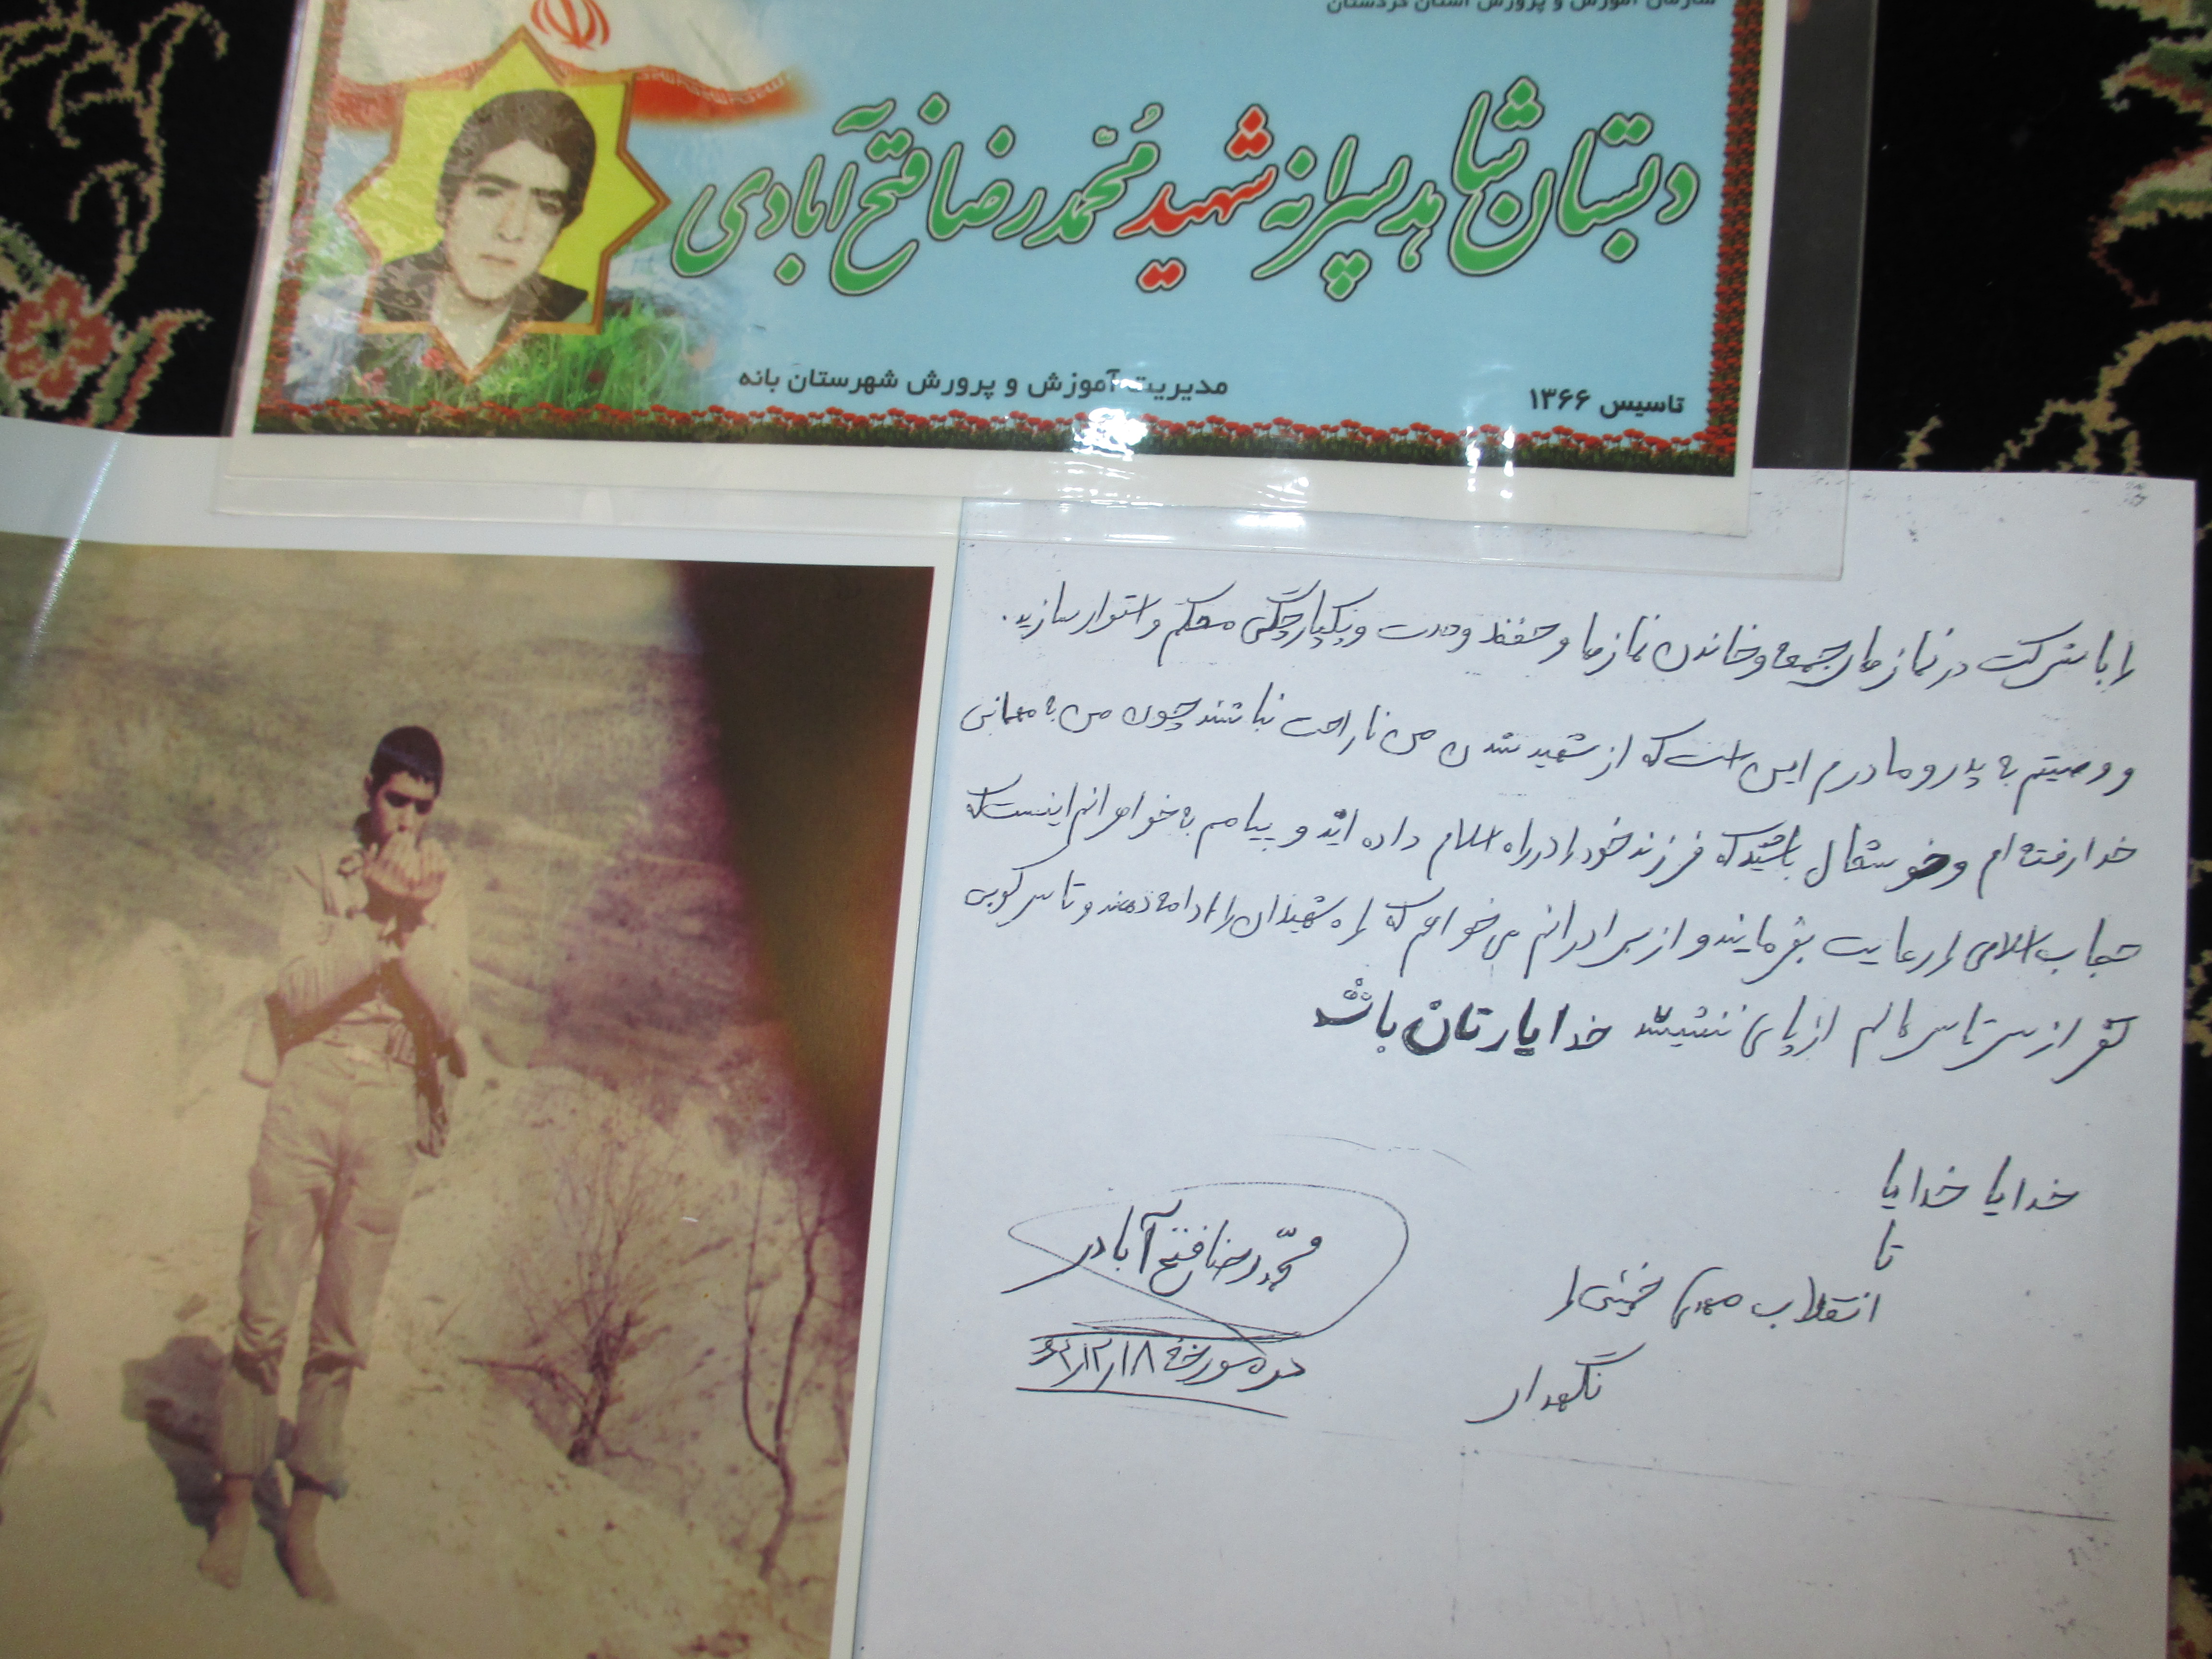 سازمان آموزش و پرورش استان کردستان
دبستان شاهد پسرانه شهید محمدرضا فتح آبادی
تاسیس ۱۳۶۶
مدیریت آموزش و پرورش شهرستان بانه
را با شرکت در نمازهای جمعه و خاندن نمازها و حفظ وحدت و یکپارچگی محکم و استوار سازید.
و وصیتم به پدر و مادرم این است که از شهید شدن من ناراحت نباشند چون من به مهمانی
خدا رفته ام و خوشحال باشید که فرزند خود را در راه اسلام داده اید و پیامم به خواهرانم اینست که
حجاب اسلامی را رعایت بفرمایند و از برادرانم می خواهم که راه شهیدان را ادامه دهند و تا سرکوبی
کفر از سرتاسر عالم از پای ننشینند خدا یارتان باشد
خدایا خدایا
تا
انقلاب مهدی خمینی را
نگهدار
محمدرضا فتح آبادی
مورخه ۶۲/۱۲/۱۸